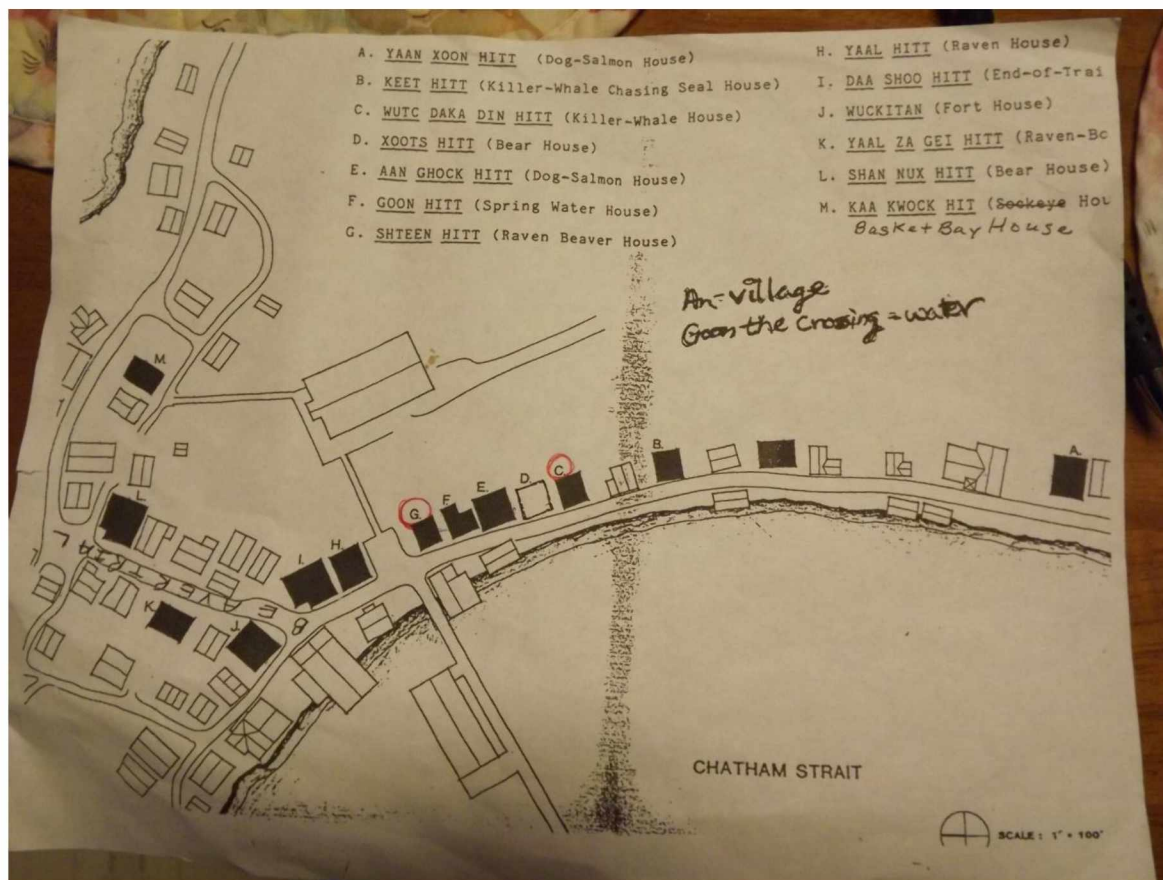 A. YAAN XOON HITT (Dog-Salmon House)
B. KEET HITT (Killer-Whale Chasing Seal House)
C. WUTC DAKA DIN HITT (Killer-Whale House)
D. XOOTS HITT (Bear House)
E. AAN GHOCK HITT (Dog-Salmon House)
F. GOON HITT (Spring Water House)
G. SHTEEN HITT (Raven Beaver House)
H. YAAL HITT (Raven House)
I. DAA SHOO HITT (End-of-Trai
J. WUCKITAN (Fort House)
K. YAAL ZA GEI HITT (Raven-Bo
L. SHAN NUX HITT (Bear House)
M. KAA KWOCK HIT (Sockeye Hou
Basket Bay House
An-village
Goon the Crossing = water
M.
L.
K.
J.
I.
H.
G.
F.
E.
D.
C.
B.
A.
BEAVER TRAIL
CHATHAM STRAIT
SCALE: 1" = 100'